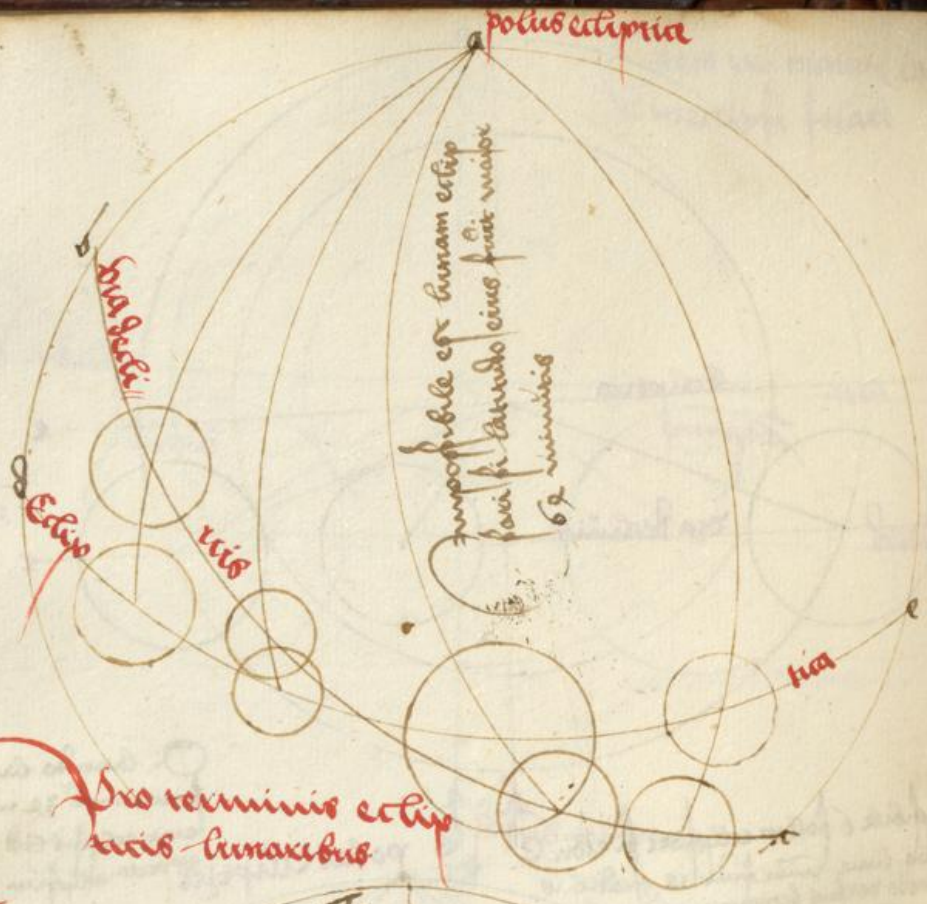 a
polus ecliptice
via decli
uis
Eclip
tica
e
Impossibile est lunam eclip
sari si latitudo eius fuerit maior
minutis
Pro terminis eclip
ticis lunaribus